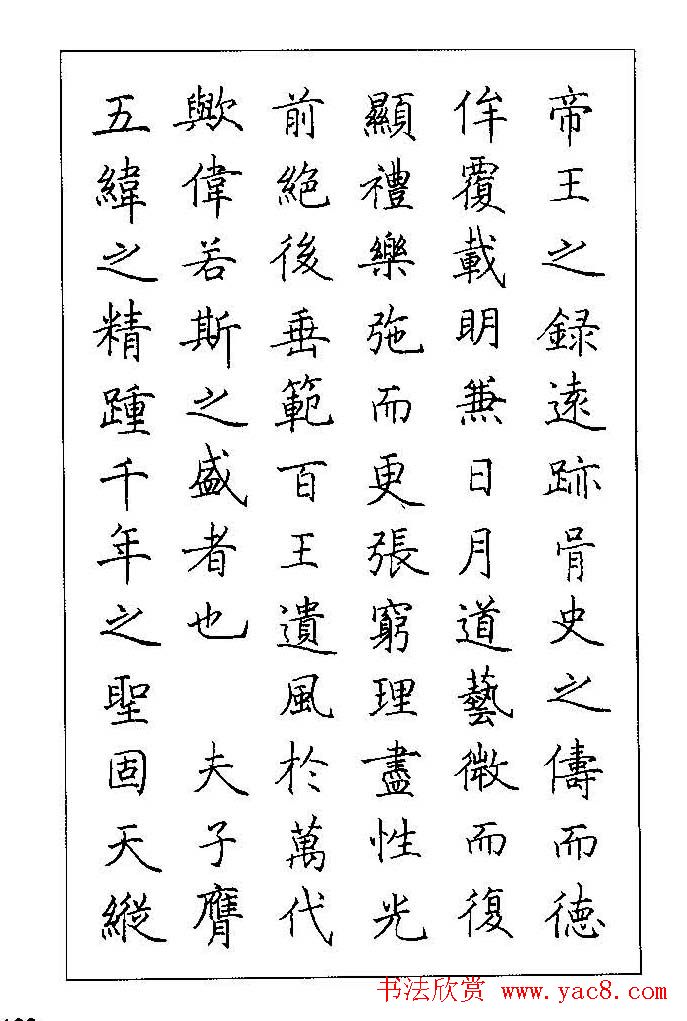 帝王之録遠跡胥史之儔而德
侔覆載明兼日月道藝微而復
顯禮樂弛而更張窮理盡性光
前絶後垂範百王遺風於萬代
歟偉若斯之盛者也 夫子膺
五緯之精踵千年之聖固天縱
书法欣赏 www.yac8.com